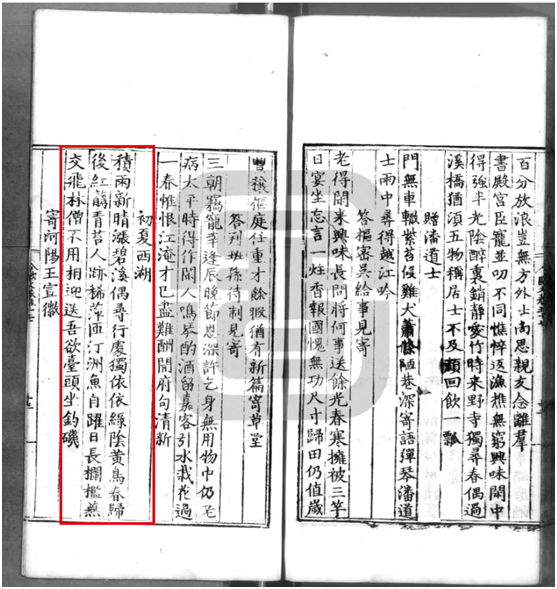 百分放浪豈無方外士尚思親友念離羣
書殿宮臣寵並叨不同憔悴返漁樵無窮興味閑中
得強半光陰醉裏銷靜愛竹時來野寺獨尋春偶過
溪橋猶須五物稱居士不及顏回飲一瓢
贈潘道士
門無車轍紫苔侵雞犬蕭條陋巷深寄語彈琴潘道
士雨中尋得越江吟
答樞密吳給事見寄
老得閒來興味長問將何事送餘光春寒擁被三竿
日宴坐忘言一炷香報國愧無功尺寸歸田仍值歲
豐穰樞庭任重才餘暇猶有新篇寄草堂
答判班孫待制見寄
三朝竊寵幸逢辰晚節恩深許乞身無用物中仍老
病太平時得作閑人鳴琴酌酒留嘉客引水栽花過
一春惟恨江淹才已盡難酬開府句清新
初夏西湖
積雨新晴漲碧溪偶尋行處獨依依綠陰黃鳥春歸
後紅蘤青苔人跡稀萍匝汀洲魚自躍日長欄檻燕
交飛林僧不用相迎送吾欲臺頭坐釣磯
寄河陽王宣徽